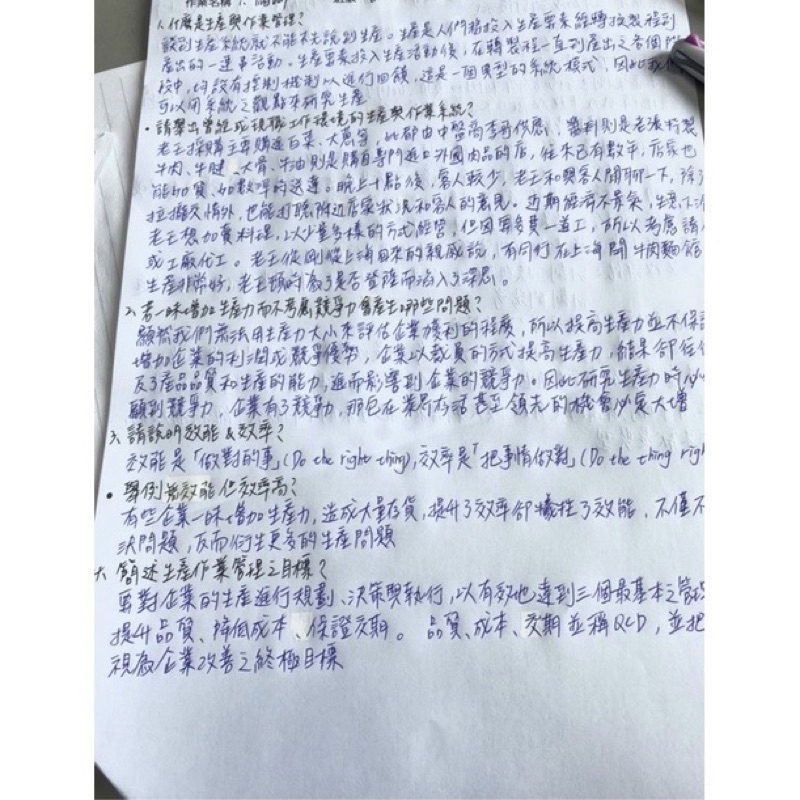 作業名稱：1.
1. 什麼是生產與作業管理?
談到生產系統就不能不先說到生產。生產是人們將投入生產要素經轉換製程到
產出的一連串活動。生產要素投入生產活動後，在轉製程一直到產出之各個階
段中，均設有控制機制以進行回饋，這是一個典型的系統模式，因此我們
可以用系統之觀點來研究生產
• 請舉出曾經或現職工作環境的生產與作業系統?
老王採購主要購進白菜、大蔥等，此都由中盤商李再供應，醬料則是老張特製
牛肉、牛腱、大骨、牛油則是購自專門進口外國肉品的店，往來已有數年，店家也
能如質、如數哩的送達。晚上十點後，客人較少，老王和與客人閒聊一下，除了
拉攏交情外，也能打聽附近店家狀況和客人的意見。近期經濟不景氣，生意下
老王想加賣料理，以少量多樣的方式經營，但因要多費一道工，所以考慮請人
或工廠代工。老王從剛從上海回來的親戚說，有同行在上海開牛肉麵館
生產非常好，老王頓時為了是否登陸而陷入了深思。
2. 若一味增加生產力而不考慮競爭力會產生哪些問題?
顯然我們無法用生產力大小來評估企業獲利的程度，所以提高生產力並不保證
增加企業的利潤或競爭優勢，企業以裁員的方式提高生產力，結果卻往往
及了產品品質和生產的能力，進而影響到企業的競爭力。因此研究生產力時必
顧到競爭力，企業有了競爭力，那它在業界存活甚至領先的機會必定大增
3. 請說明效能&效率?
效能是「做對的事」(Do the right thing)，效率是「把事情做對」(Do the thing righ
• 舉例無效能但效率高?
有些企業一味增加生產力，造成大量存貨，提升了效率卻犧牲了效能，不僅不
決問題，反而衍生更多的生產問題
六 簡述生產作業管理之目標?
要對企業的生產進行規劃、決策與執行，以有效地達到三個最基本之管理
提升品質、降低成本、保證交期。品質、成本、交期並稱QCD，並把
視為企業改善之終極目標